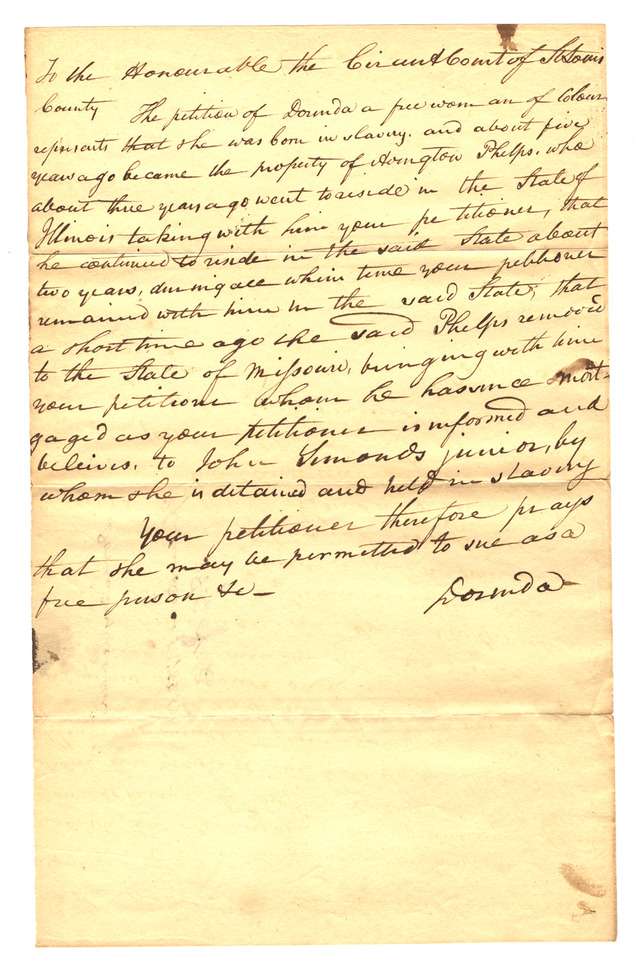 To the Honourable the Circuit Court of St Louis
County The petition of Dorinda a free woman of Colour
represents that she was born in slavery. and about five
years ago became the property of Avington Phelps. who
about three years ago went to reside in the State of
Illinois taking with him your petitioner, that
he continued to reside in the said State about
two years, during all which time your petitioner
remained with him in the said State; that
a short time ago the said Phelps removed
to the State of Missouri, bringing with him
your petitioner whom he has since mort-
gaged as your petitioner is informed and
beleives. to John Simonds junior, by
whom she is detained and held in slavery
Your petitioner therefore prays
that she may be permitted to sue as a
free person &c—
Dorinda